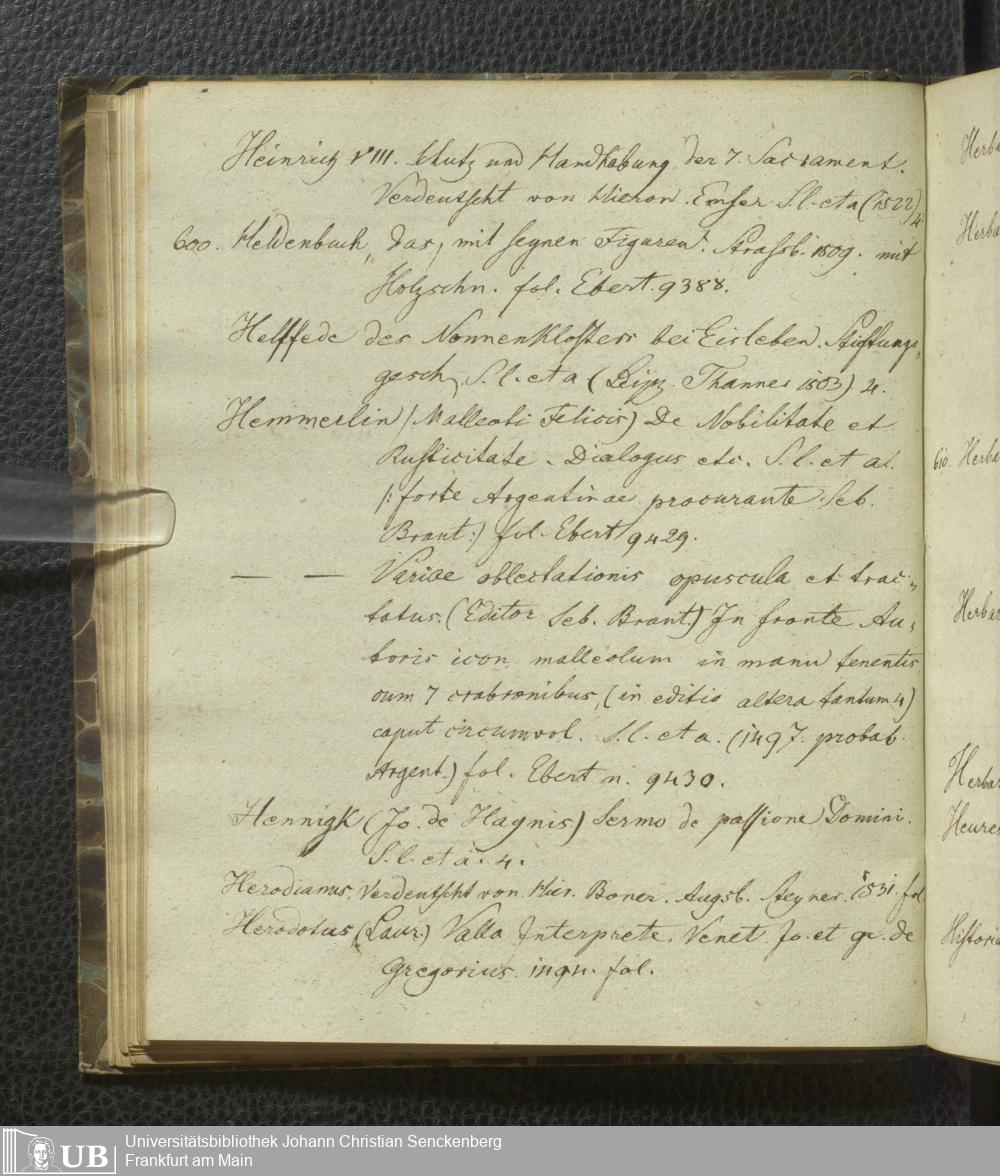 Heinrich VIII. Schutz und Handhabung der 7. Sacrament.
Verdeutscht von Hieron. Emser S. l. et a (1522) 4.
600. Heldenbuch, das, mit seynen Figuren. Strassb. 1509. mit
Holzschn. fol. Ebert. 9388.
Helffede des Nonnenklosters bei Eisleben. Stiftungs,
gesch. S. l. et a (Leipz. Thanner 1503) 4.
Hemmerlin (Malleoli Felicis) De Nobilitate et
Rusticitate. Dialogus etc. S. l. et a.
/: forte Argentinae procurante Seb.
Brant:/ fol. Ebert 9429.
— — Variae oblectationis opuscula et trac,
tatus. (Editor Seb. Brant.) In fronte Au,
toris icon malleolum in manu tenentis
cum 7 crabronibus, (in editio altera tantum 4)
caput circumvol. S. l. et a. (1497. probab.
Argent.) fol. Ebert n. 9430.
Hennigk (Jo. de Hagnis) Sermo de passione Domini.
S. l. et a. 4.
Herodianus. Verdeutscht von Hier. Boner. Augsb. Steyner. 1531. fol
Herodotus (Laur.) Valla Interprete. Venet. Jo. et gr. de
Gregorius 1494. fol.
Herba
Herba
610. Herba
Herbar
Herbar
Heures
Historia
UB
Universitätsbibliothek Johann Christian Senckenberg
Frankfurt am Main